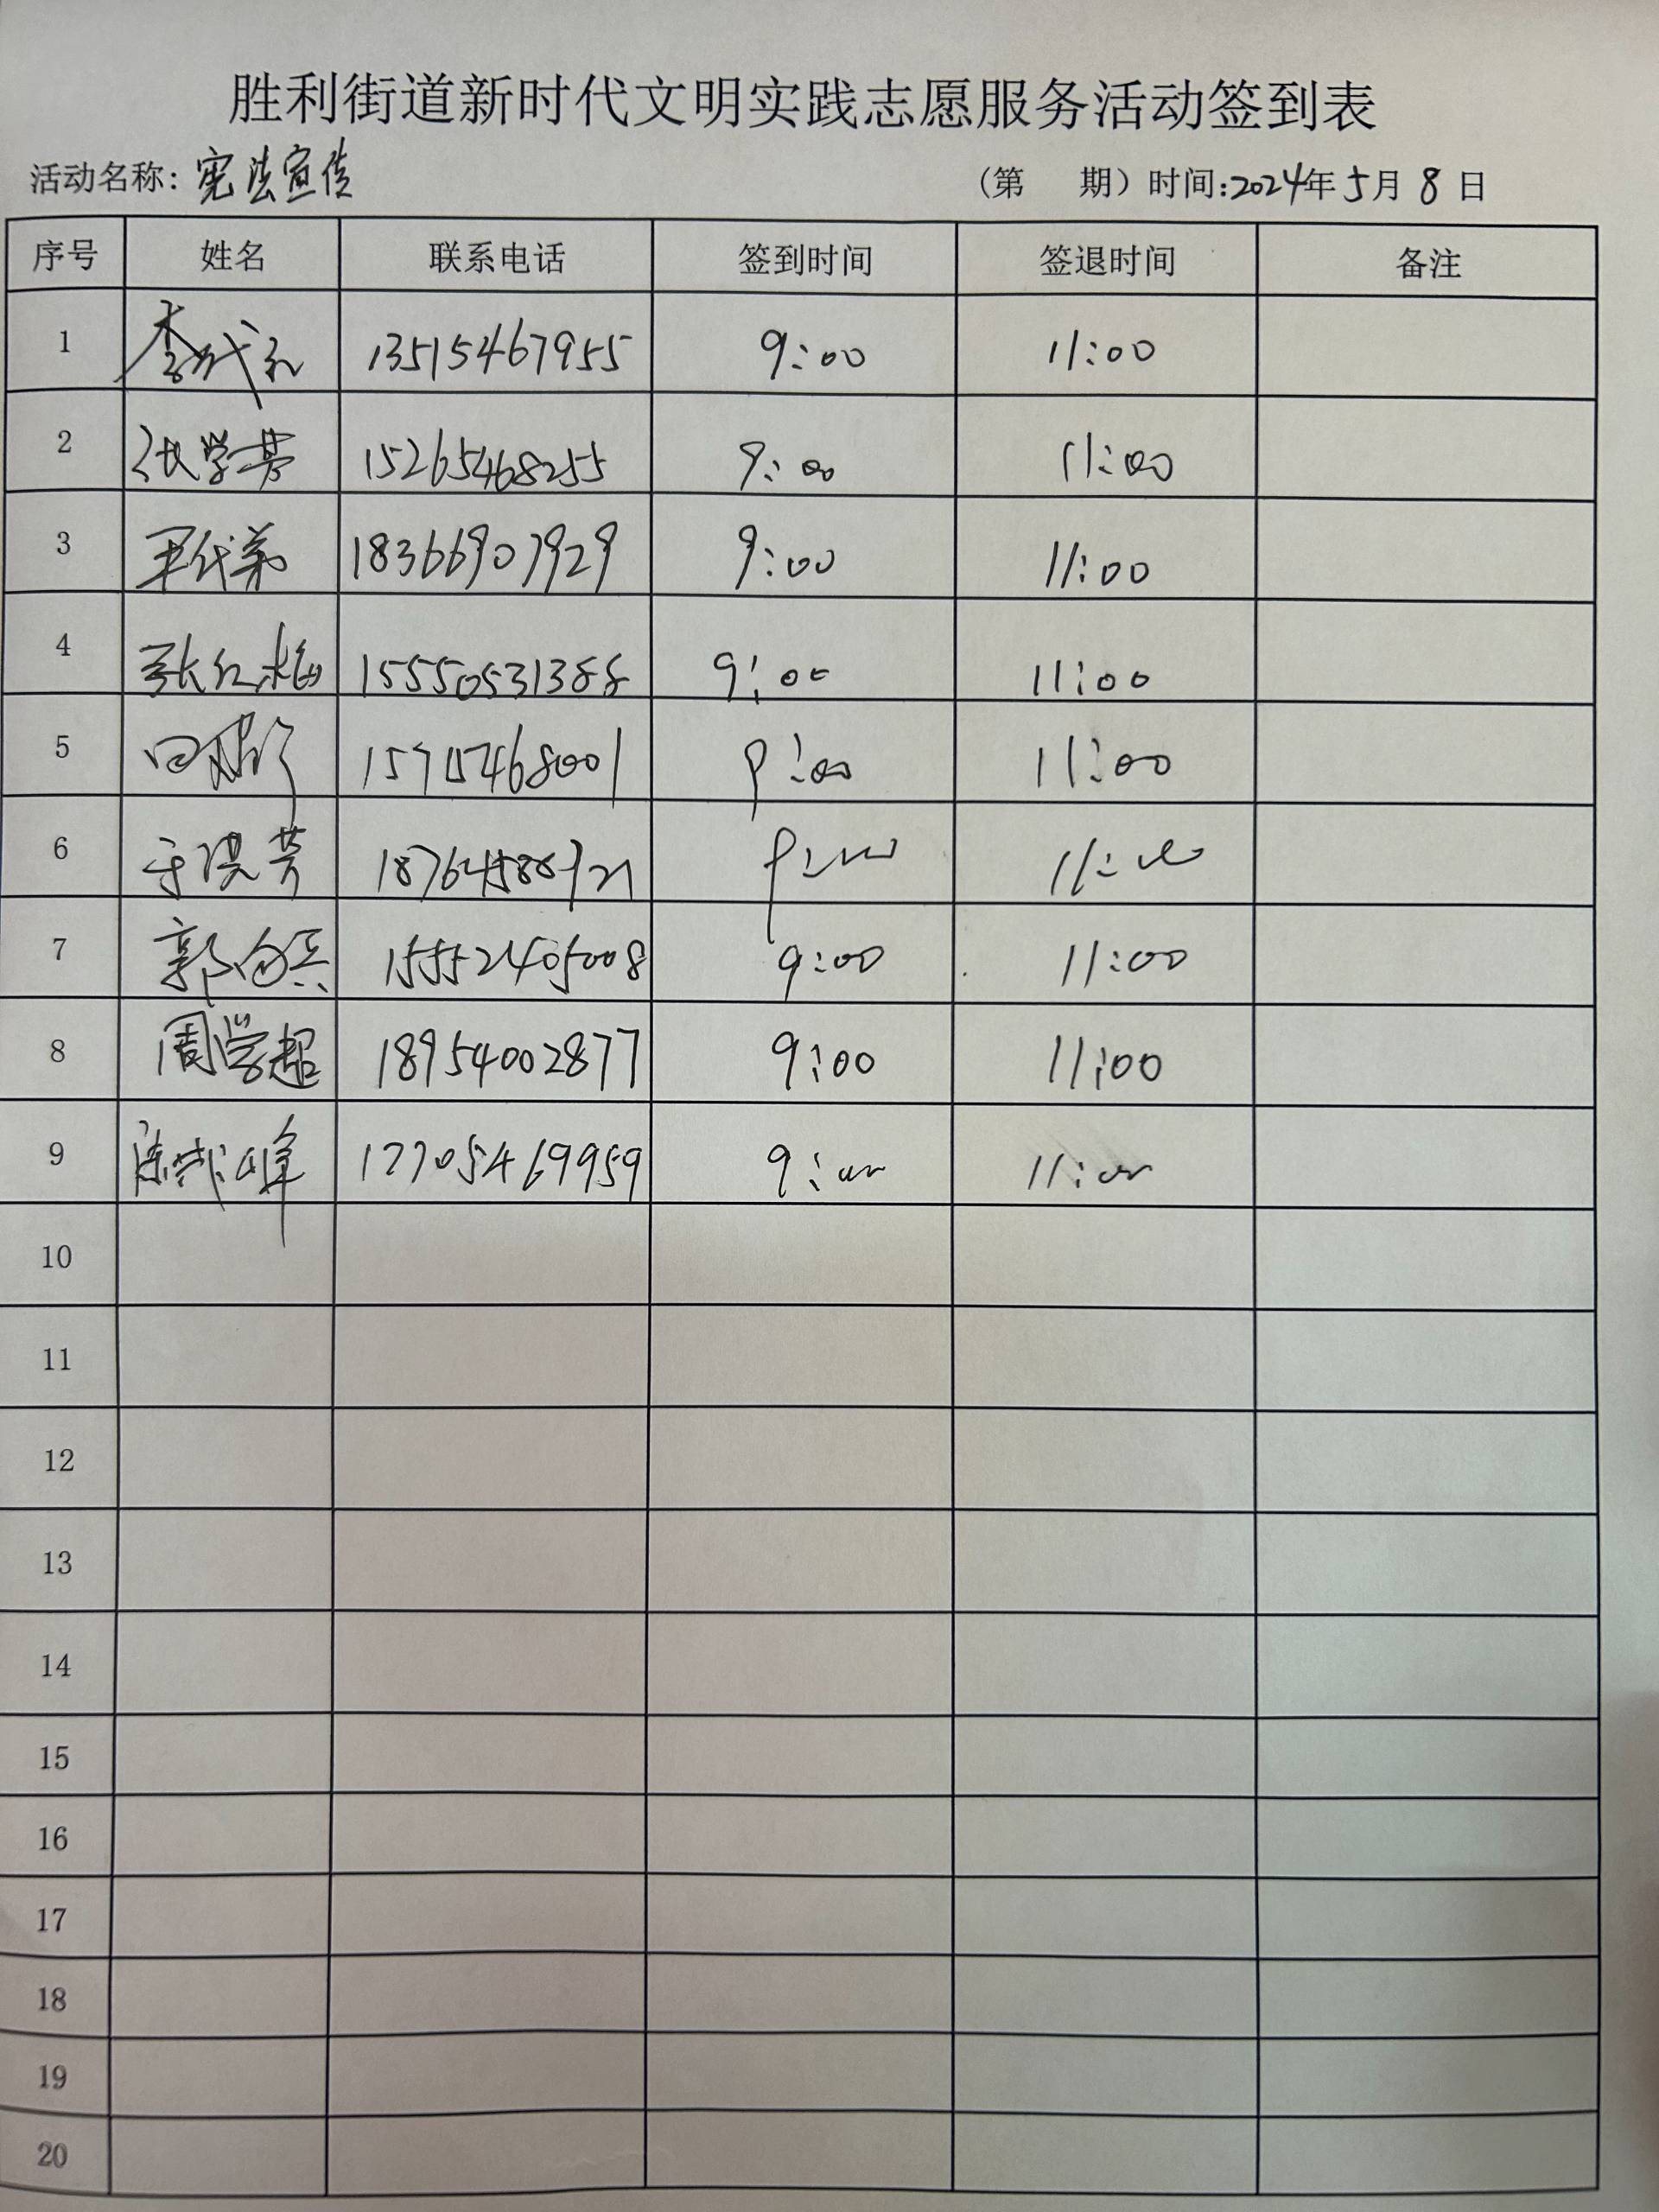 胜利街道新时代文明实践志愿服务活动签到表
活动名称: 宪法宣传 (第 期) 时间:2024年5月8日
序号 姓名 联系电话 签到时间 签退时间 备注
1 李 13515467955 9:00 11:00
2 张学芳 15265468255 9:00 11:00
3 王代弟 18366907929 9:00 11:00
4 张红梅 15550531388 9:00 11:00
5 15715468001 9:00 11:00
6 于洪芳 9:00 11:00
7 郭 15552405008 9:00 11:00
8 周学超 18954002877 9:00 11:00
9 陈 峰 17705469959 9:00 11:00
10
11
12
13
14
15
16
17
18
19
20